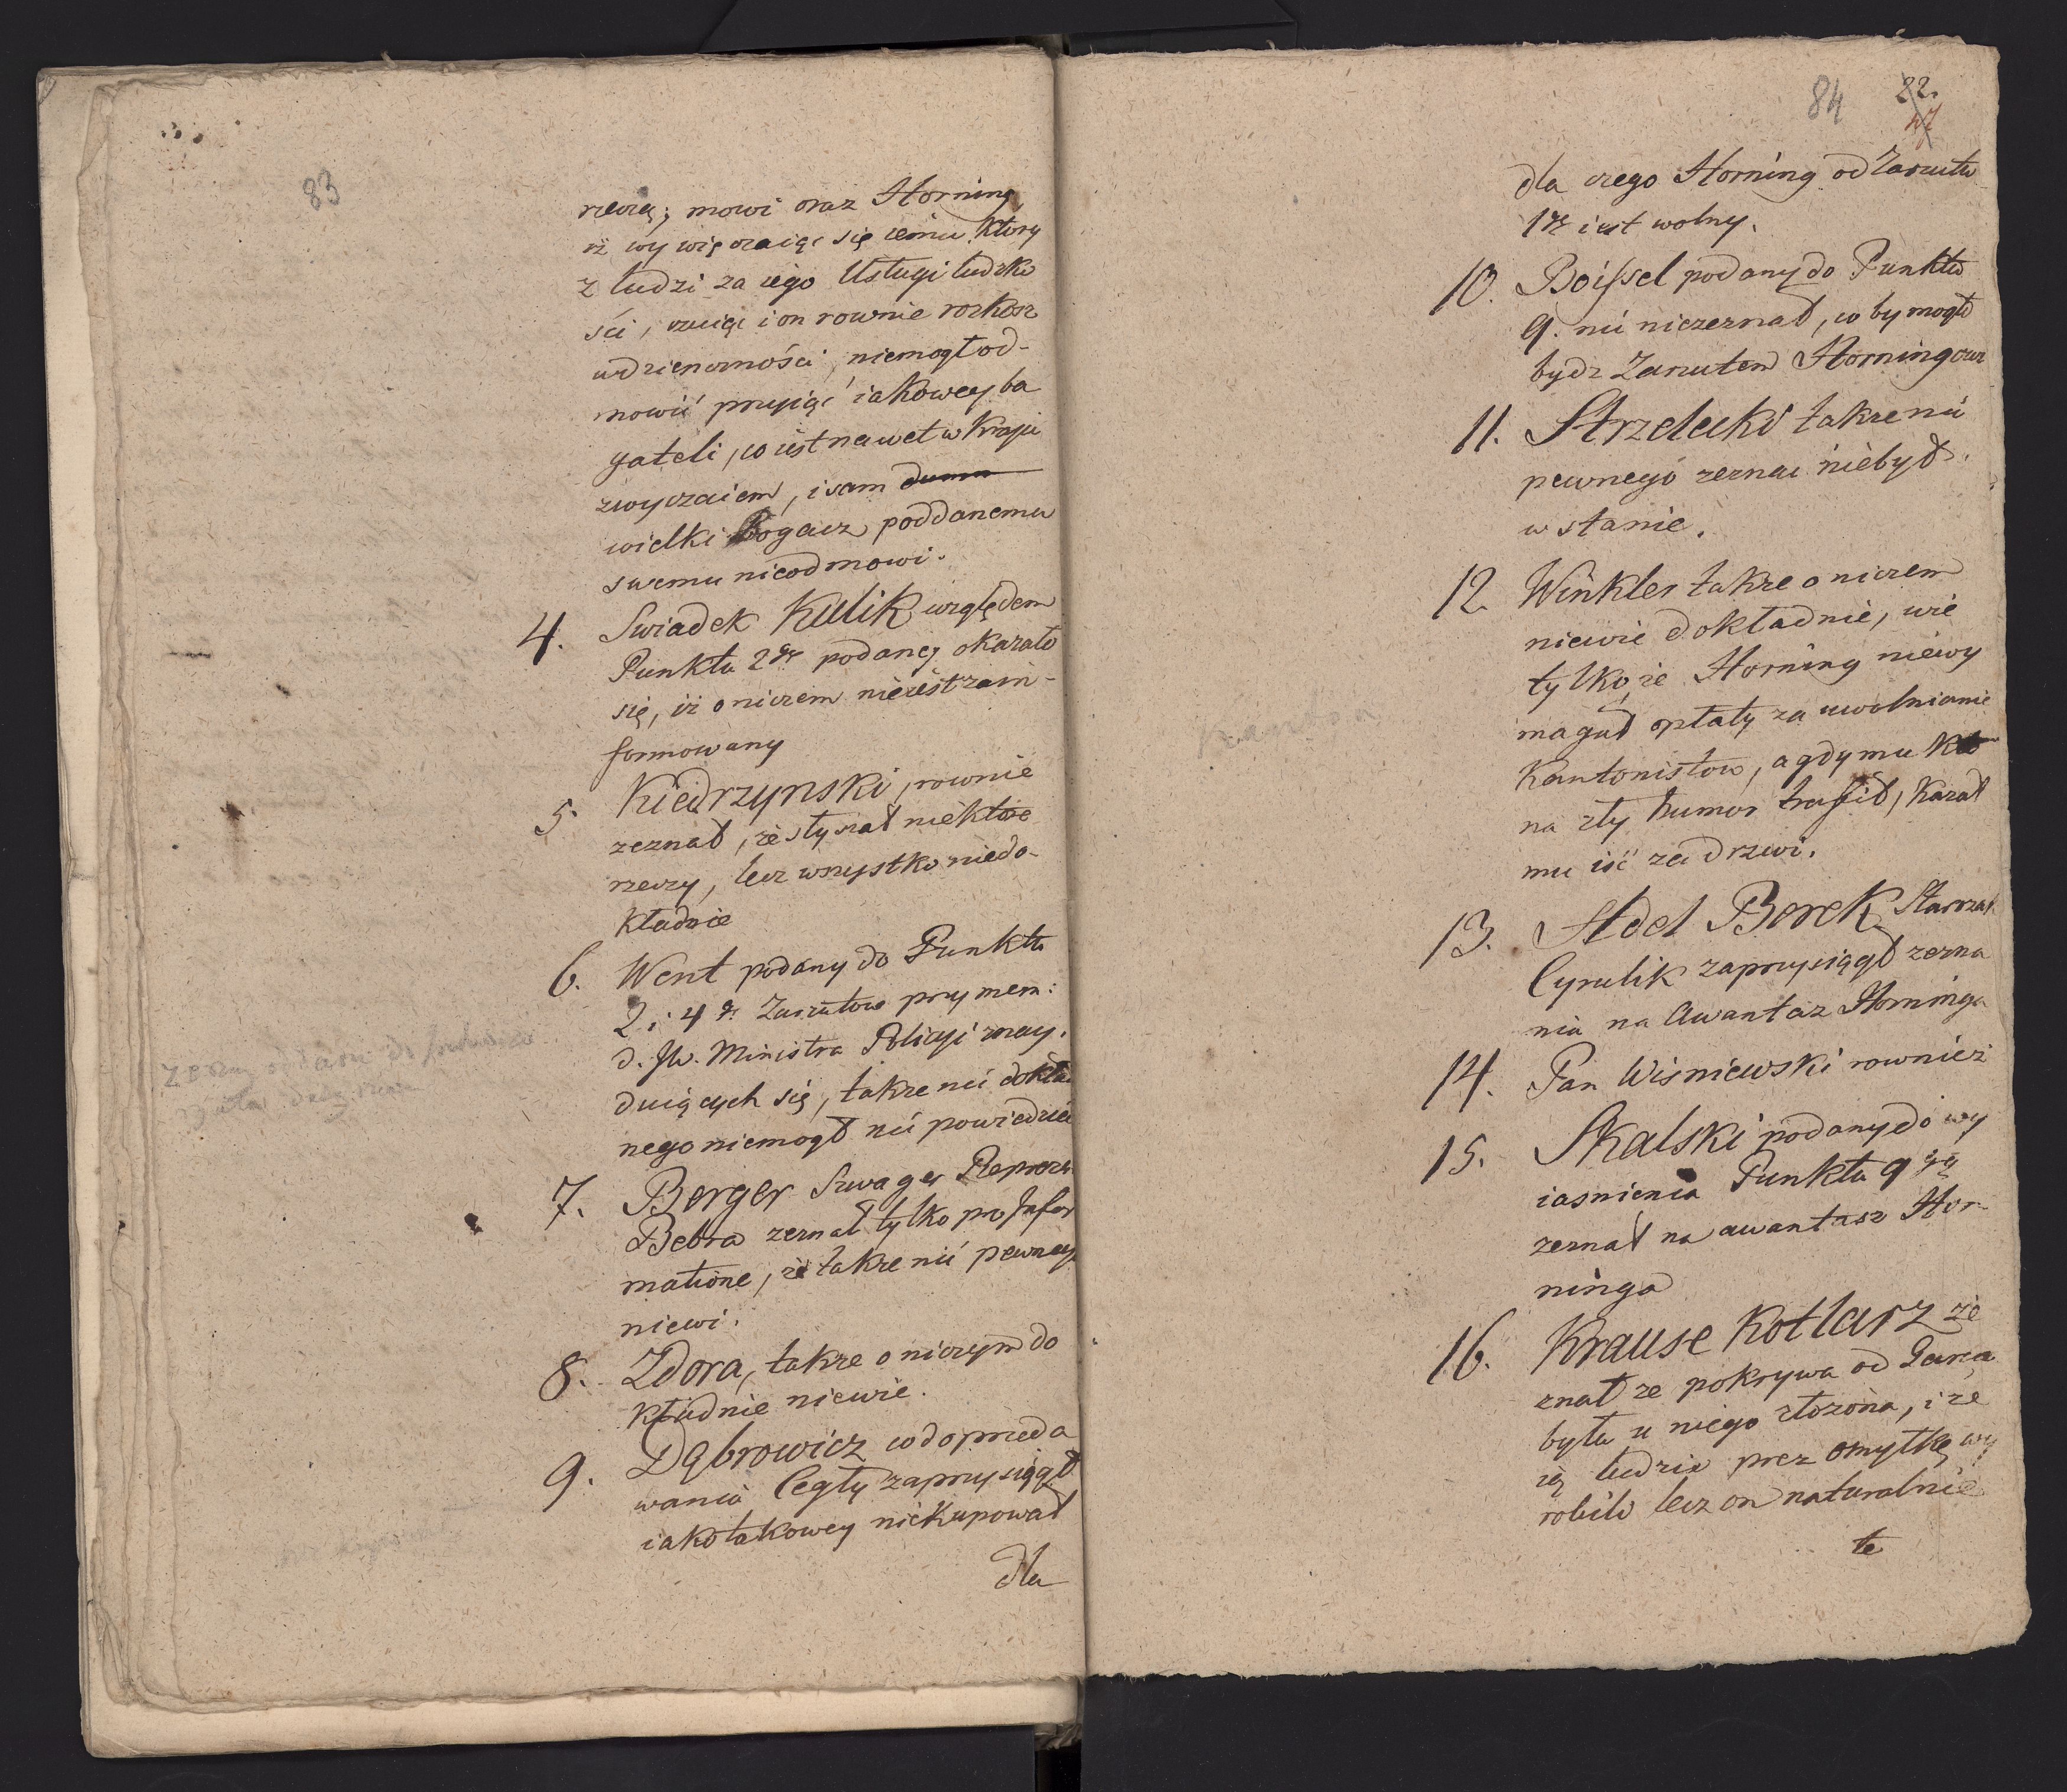 83
rzeczą; mowi oraz Horning,
iż wywięzaiąc się iemu ktory
z ludzi za iego Usługi ludzko
ści, czuiąc i on rownie rozkosz
wdzięczności, niemogł od-
mowić przyiąć iakoweyba
gateli, co iest nawet w Kraju
zwyczaiem, i sam
wielki Bogacz poddanemu
swemu nieodmowi.
4. Swiadek Kulik względem
Punktu 2go podany okazało
się, iż o niczem nieiest zain-
formowany
5. Kiedrzynski, rownie
zeznał, że słyszał niektore
rzeczy, lecz wszystko niedo-
kładnie
6. Went podany do Punktu
2. i 4go Zarzutow przy mem:
d. JW. Ministra Policyi znay.
duiących się, także nic dokła
dnego niemogł nic powiedzieć
7. Berger Szwager
Bebra zeznał tylko pro Infor
matione, iż także nic pewney
niewi.
8. Zdora, także o niczym do
kładnie niewie.
9. Dąbrowicz co do przeda
wania Cegły zaprzysiągł
iako takowey niekupował
dla
84 22.
47
dla czego Horning od Zarzutu
1go iest wolny.
10. Boissel podany do Punktu
9. nic niezeznał, co by mogło
bydz Zarutem Horningowi
11. Strzelecki także nic
pewnego zeznac niebył
w stanie.
12. Winkler także o niczem
niewie dokładnie, wie
tylko, że Horning niewy
magał opłaty za uwolnianie
Kantonistow, a gdy mu kto
na zły humor trafił, Kazał
mu iść za drzwi.
13. Adel Berek Starozak
Cyrulik zaprzysiągł zezna
nia na awantaz Horninga
14. Pan Wisniewski rownież
15. Skalski podany do wy
iasnienia Punktu 9go
zeznał na awantasz Hor-
ninga
16. Krause Kotlarz ze
znał że pokrywa od Garca
była u niego złożona, i że
ią ludzie przez omyłkę wy
robili lecz on naturalnie
te